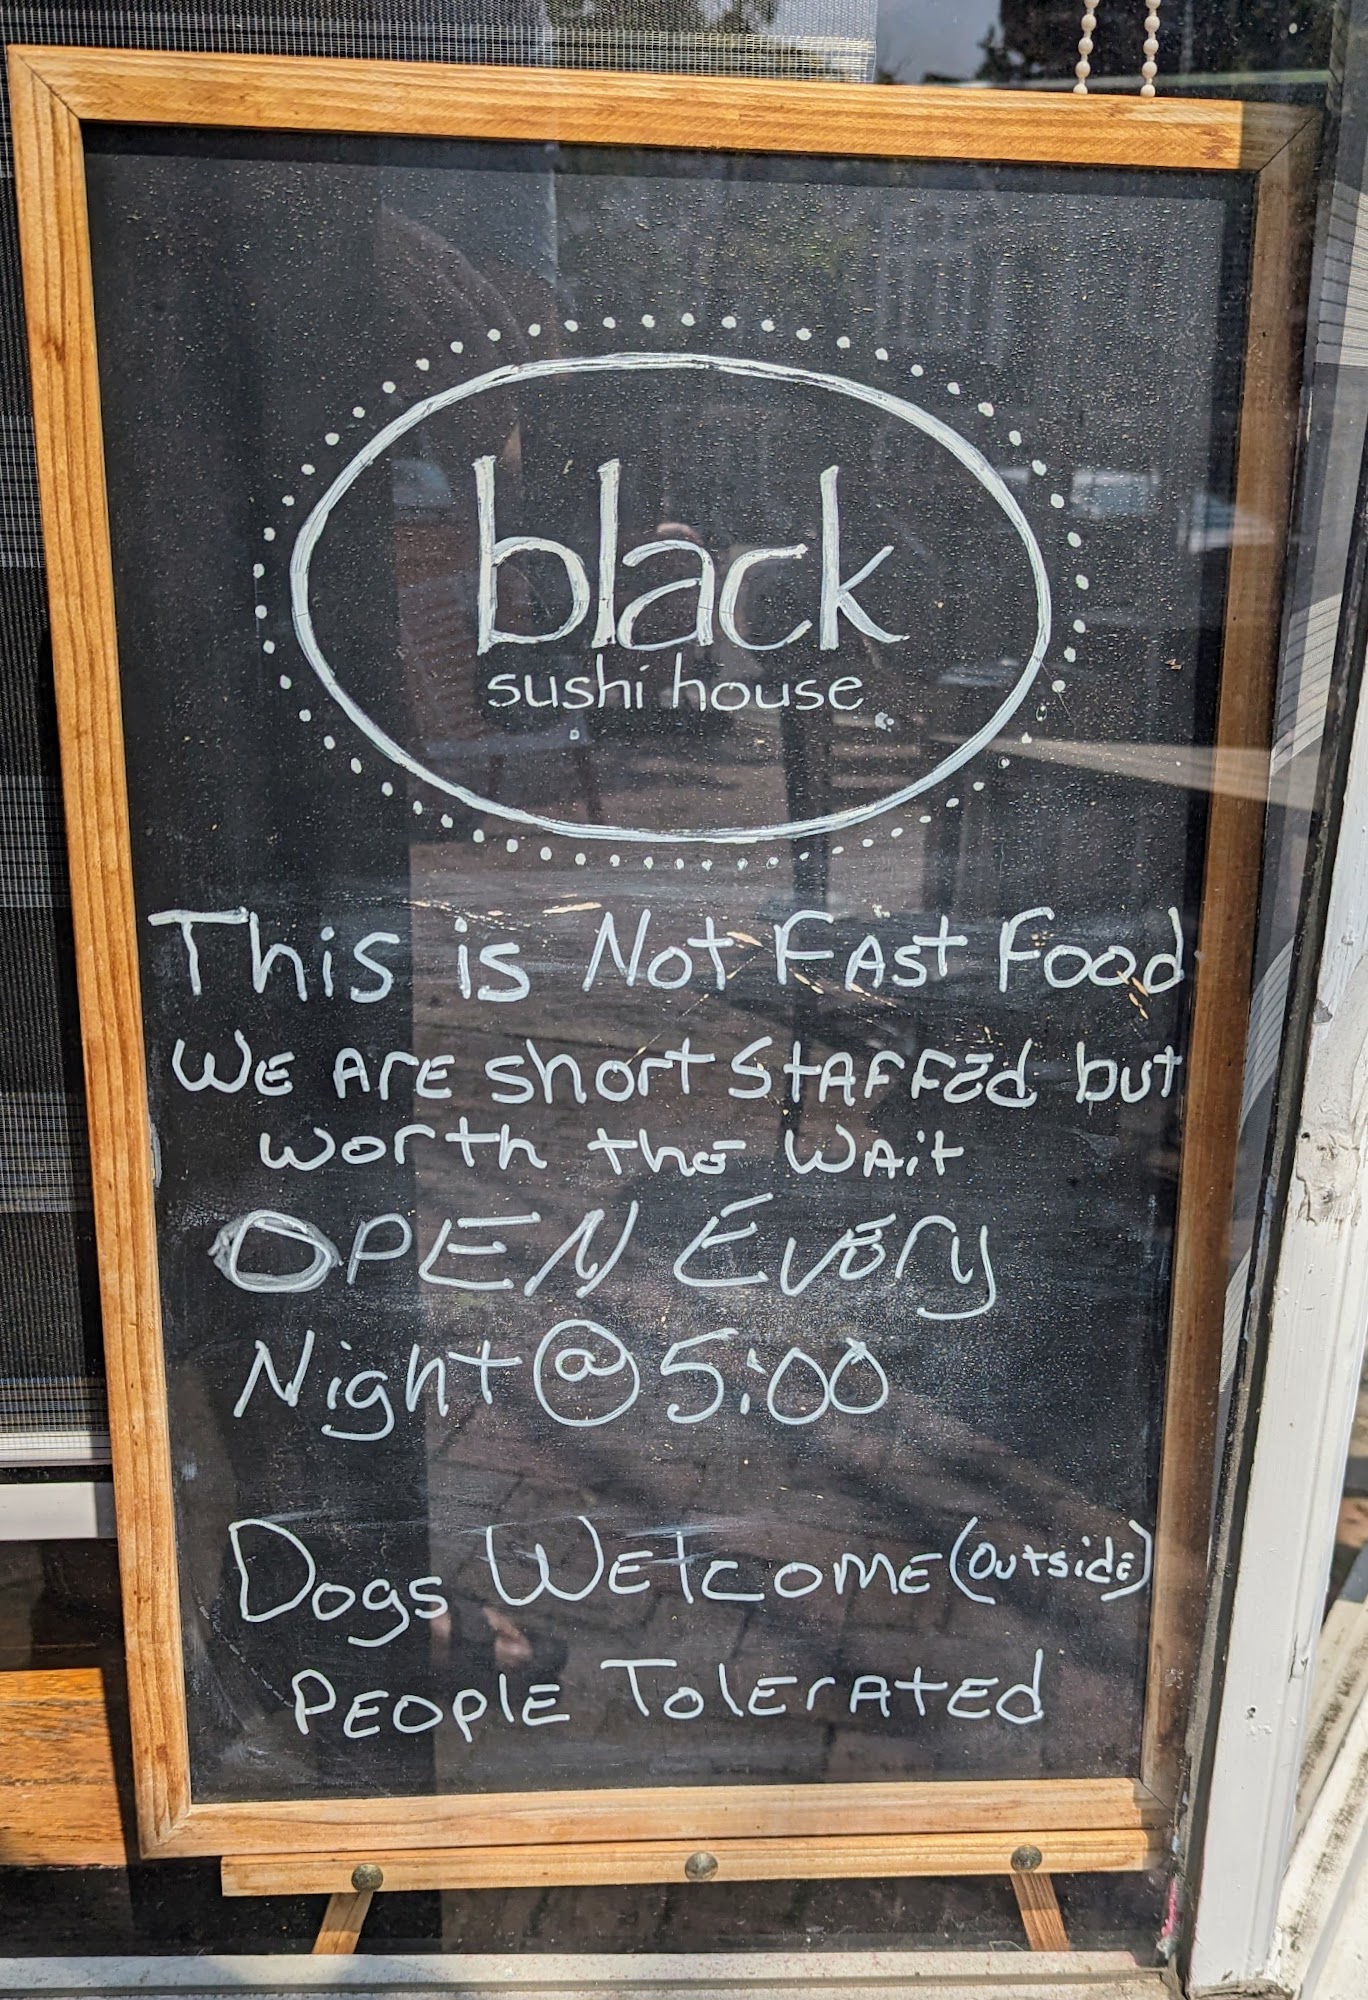 black
sushi house
This is Not Fast Food
We Are short Staffed but
worth the Wait
OPEN Every
Night @ 5:00
Dogs Welcome (outside)
People Tolerated